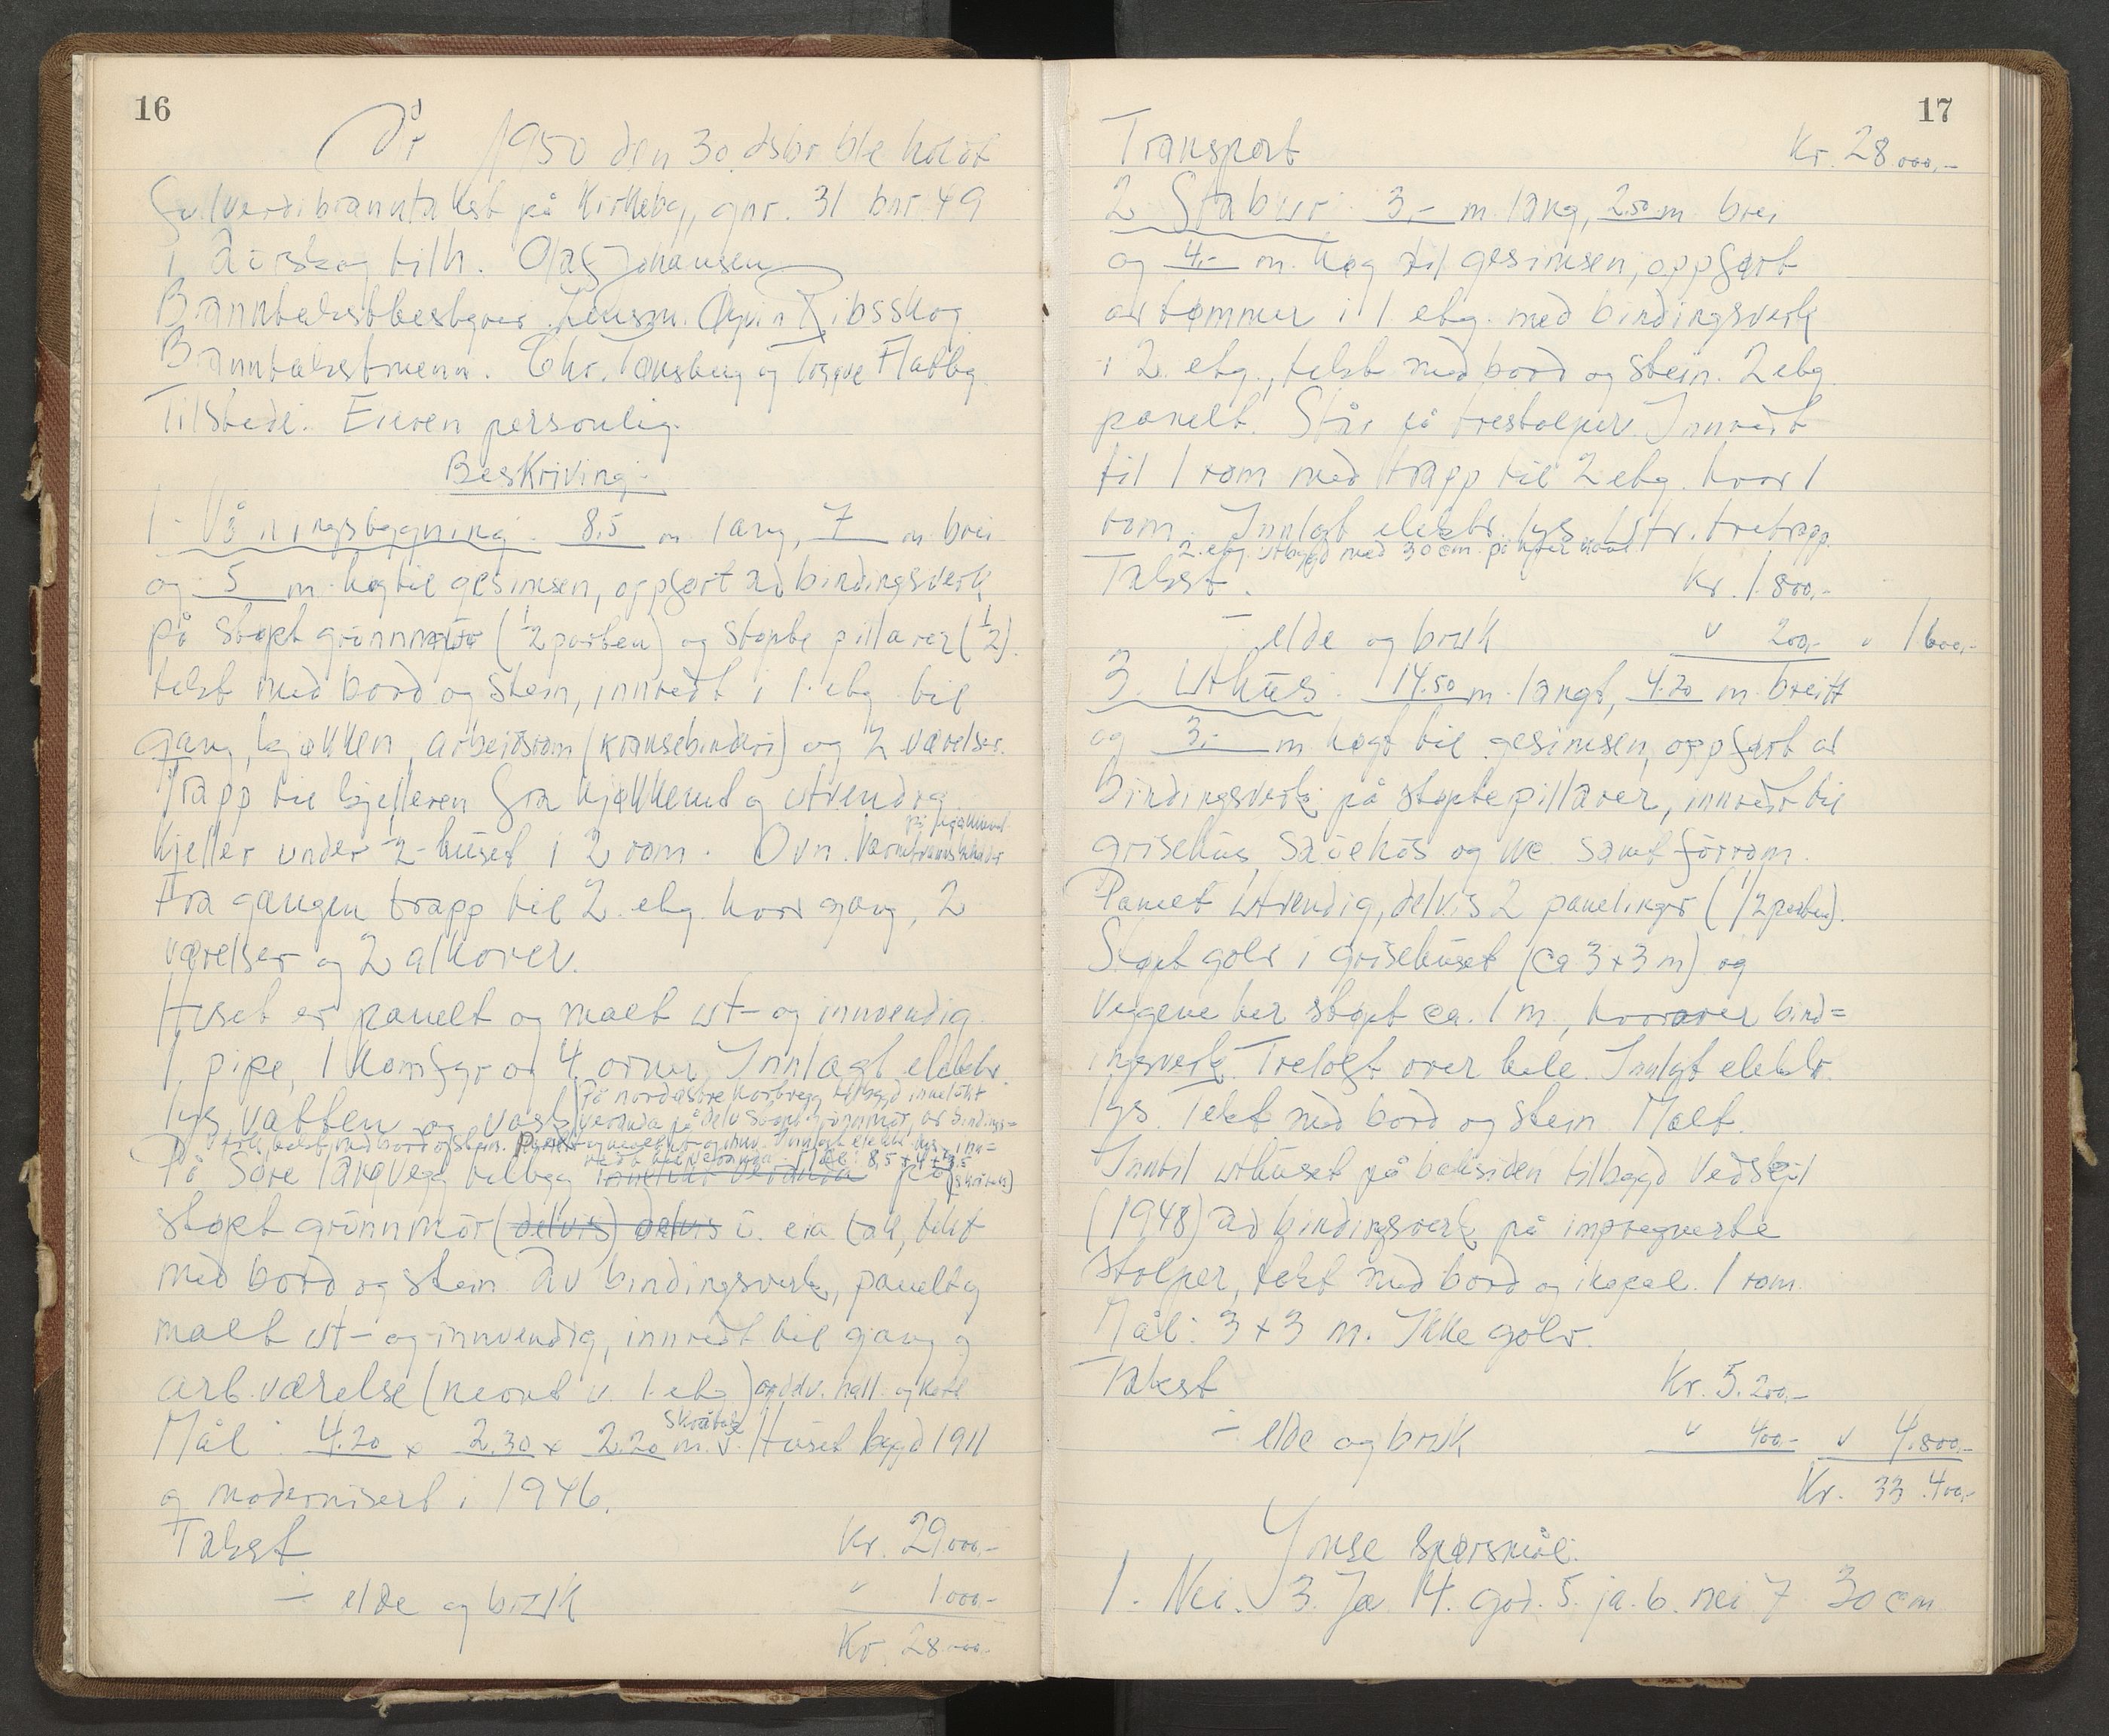 16
År 1950 den 30. dsbr. ble holdt
fullverdibranntakst på Kirkeby, gnr. 31 bnr. 49
i Aurskog tilh. Olaf Johansen
Branntakstbestyrer Lensm. Ribsskog
Branntakstmenn. Chr. Tønsberg og Trygve Flatby.
Tilstede: Eieren personlig.
Beskriving:
1. Våningsbygning. 8,5 m lang, 7 m brei
og 5 m høg til gesimsen, oppført av bindingsverk
på støpt grunnmur (1/2 parten) og støpte pillarer (1/2).
tekt med bord og stein, innredt i 1. etg. til
gang, kjøkken, arbeidsrom (kransebinderi) og 2 værelser.
Trapp til kjelleren fra kjøkkenet og utvendig.
på kjøkkenet
Kjeller under 1/2-huset i 2 rom. Ovn.
Fra gangen trapp til 2. etg. hvor gang, 2
værelser og 2 alkover.
Huset er panelt og malt ut- og innvendig.
1 pipe, 1 komfyr og 4 ovner. Innlagt elektr.
På nordøstre kortvegg tilbygd innelukt
lys, vatten og vask. veranda på delv. støpt grunnmur, av bindings=
verk, tekt med bord og stein. Panelt og malt ut- og innv. Innlagt elektr. lys, inn=
redt til veranda. Mål: 8,5 x 4 x 2,5
På søre langvegg tilbygg innelukt veranda på (skråtak)
støpt grunnmur (delvis) delvis tak, tekt
med bord og stein. Av bindingsverk, panelt og
malt ut- og innvendig, innredt til gang og
arb.værelse (neont v. 1. etg.) og delv. hall
skråtak
Mål: 4.20 x 2.30 x 2.20 m. Huset bygd 1911
og modernisert i 1946.
Takst Kr. 29.000,-
÷ elde og bruk " 1.000,-
Kr. 28.000,-
17
Transport Kr. 28.000,-
2 Stabur: 3,- m lang, 2.50 m brei
og 4,- m. høg til gesimsen, oppført
av tømmer i 1. etg. med bindingsverk
i 2. etg., tekt med bord og stein. 2 etg.
panelt. Står på trestolper. Innredt
til 1 rom med trapp til 2 etg. hvor 1
rom. Innlagt elektr. lys. 1 str. tretrapp.
2. etg. utbygd med 30 cm. på hver kant
Takst. Kr. 1.800,-
÷ elde og bruk " 200,- " 1600,-
3. Uthus: 14.50 m. langt, 4.20 m. breitt
og 3,- m høgt til gesimsen, oppført av
bindingsverk på støpte pillarer, innredt til
grisehus, sauehus og wc. samt fôrrom.
Panelt utvendig, delvis 2 panelinger (1/2 parten).
Støpt golv i grisehuset (ca 3 x 3 m) og
veggene her støpt ca. 1 m, hvorover bind=
ingsverk. Treloft over hele. Innlagt elektr.
lys. Tekt med bord og stein. Malt.
Inntil uthuset på baksiden tilbygd vedskjul
(1948) av bindingsverk på impregnerte
stolper, tekt med bord og ikopal. 1 rom.
Mål: 3 x 3 m. Ikke golv.
Takst Kr. 5.200,-
÷ elde og bruk " 400,- " 4.800,-
Kr. 33.400,-
Ymse spørsmål:
1. Nei. 3. Ja. 4. god. 5. ja. 6. nei 7 30 cm